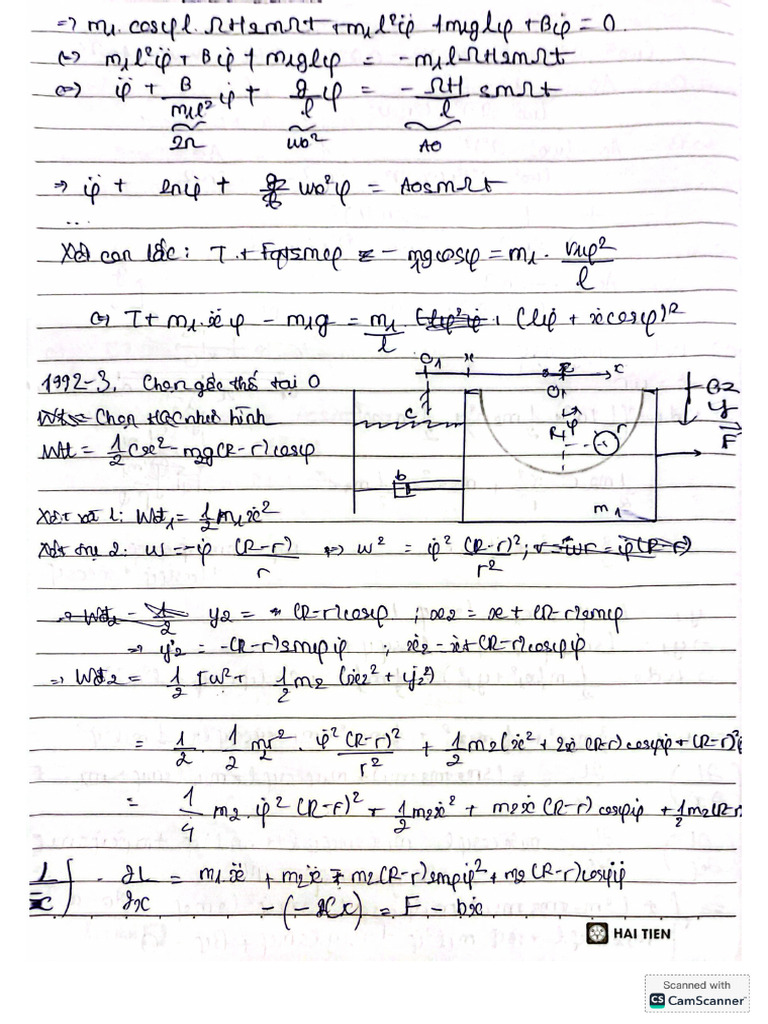 ⇒ m₁.cosφl.ΩHsinΩt + m₁l²φ̈ + m₁glφ + Bφ̇ = 0.
⇔ m₁l²φ̈ + Bφ̇ + m₁glφ = -m₁lΩHsinΩt
⇔ φ̈ + B/(m₁l²) φ̇ + g/l φ = - ΩH/l sinΩt
2n   ω₀²   A₀
⇒ φ̈ + 2nφ̇ + ω₀²φ = A₀sinΩt
...
Xét con lắc: T + Fqtsinφ - m₁gcosφ = m₁. vφ²/l
⇔ T + m₁.ẍφ - m₁g = m₁/l . (lφ̇ + ẋcosφ)²
1992-3. Chọn gốc thế tại O
Chọn như hình
Wtt = 1/2 Cx² - m₂g(R-r)cosφ
O₁ x x
O
C
R φ r
b
m₁
y
F
Xét vật 1: Wđ₁ = 1/2 m₁ẋ²
Xét trụ 2: ω = -φ̇ (R-r)/r ⇔ ω² = φ̇² (R-r)²/r² ;
y₂ = (R-r)cosφ ; x₂ = x + (R-r)sinφ
⇒ ẏ₂ = -(R-r)sinφφ̇ ; ẋ₂ = ẋ + (R-r)cosφφ̇
⇒ Wđ₂ = 1/2 Iω² + 1/2 m₂ (ẋ₂² + ẏ₂²)
= 1/2 . 1/2 mr² . φ̇²(R-r)²/r² + 1/2 m₂(ẋ² + 2ẋ(R-r)cosφφ̇ + (R-r)²φ̇
= 1/4 m₂.φ̇²(R-r)² + 1/2 m₂ẋ² + m₂ẋ(R-r)cosφφ̇ + 1/2 m₂(R-r
- ∂L/∂x = m₁ẍ + m₂ẍ - m₂(R-r)sinφφ̇² + m₂(R-r)cosφφ̈
= F bẋ
HAI TIEN
Scanned with
CS CamScanner